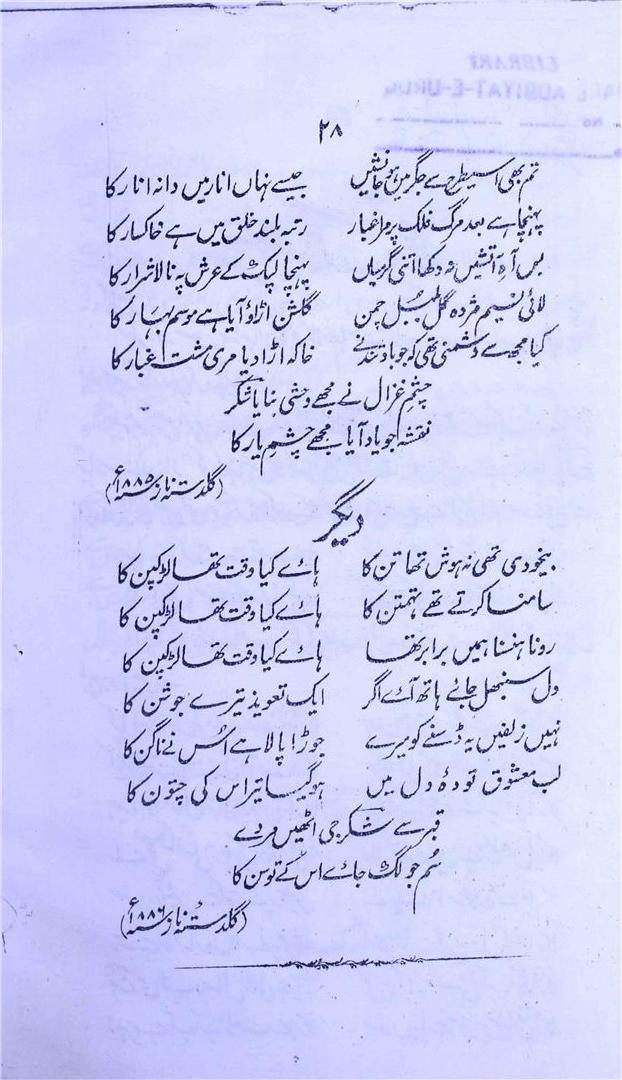 ۲۸
تم بھی اسیطرح سے جگر میں ہو جانشیں جیسے نہاں انار میں دانہ انار کا
پہنچا ہے بعد مرگ فلک پر مرا غبار رتبہ بلند خلق میں ہے خاکسار کا
بس آہِ آتشیں نہ دکھا اتنی گرمیاں پہنچا لپک کے عرش پہ نالا شرار کا
لائی نسیم مژدہ گل بلبل چمن گلشن اڑاؤ آیا ہے موسم بہار کا
کیا مجھ سے دشمنی تھی کہ جو باد تند نے خاکہ اڑا دیا مری مشت غبار کا
چشمِ غزال نے مجھے وحشی بنایا شکر
نقشہ جو یاد آیا مجھے چشمِ یار کا
(گلدستہ ناز ۱۸۸۵ء)
دیگر
بیخودی تھی نہ ہوش تھا تن کا ہائے کیا وقت تھا لڑکپن کا
سامنا کرتے تھے تہمتن کا ہائے کیا وقت تھا لڑکپن کا
رونا ہنسنا ہمیں برابر تھا ہائے کیا وقت تھا لڑکپن کا
دل سنبھل جائے ہاتھ آئے اگر ایک تعویذ تیرے جوشن کا
نہیں زلفیں یہ ڈسنے کو میرے جوڑا پالا ہے اُس نے ناگن کا
لب معشوق تودۂ دل میں ہو گیا تیر اس کی چتون کا
قبر سے شکر جی اٹھیں مردے
سُم جو لگ جائے اس کے توسن کا
(گلدستہ ناز ۱۸۸۶ء)